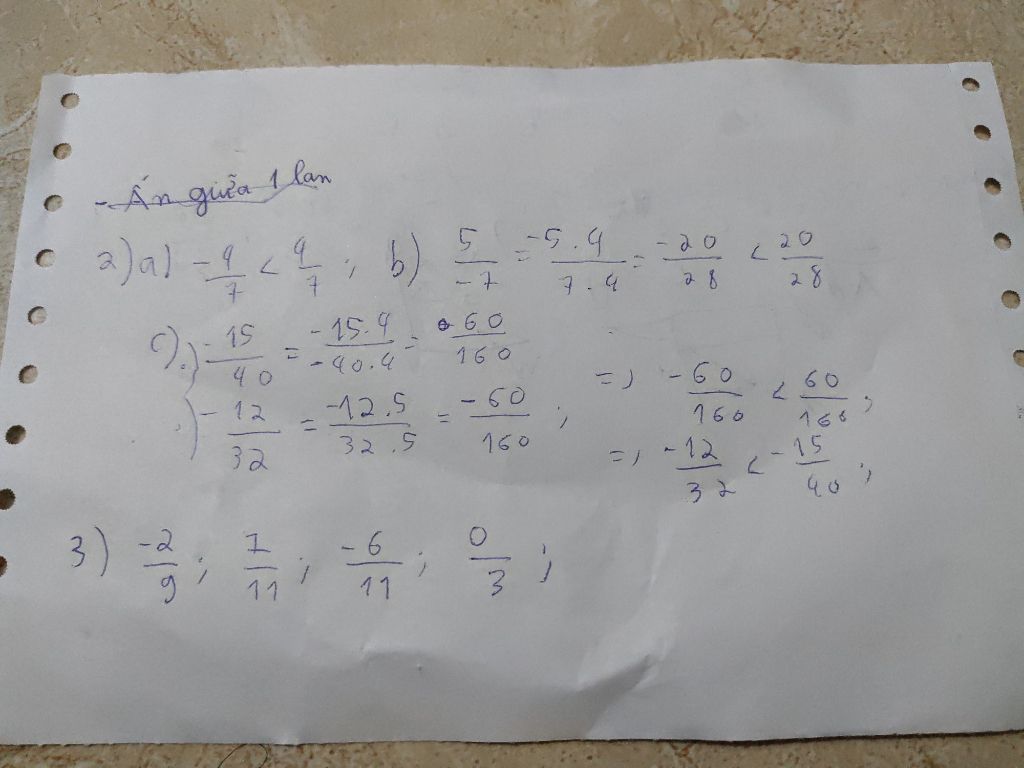 - Ấn giữa 1 lan
2) a) -4/7 < 4/7 ; b) 5/-7 = -5.4/7.4 = -20/28 < 20/28
c) -15/40 = -15.4/-40.4 = -60/160
-12/32 = -12.5/32.5 = -60/160 ; => -60/160 < 60/160 ;
=> -12/32 < -15/40 ;
3) -2/9 ; 1/11 ; -6/11 ; 0/3 ;